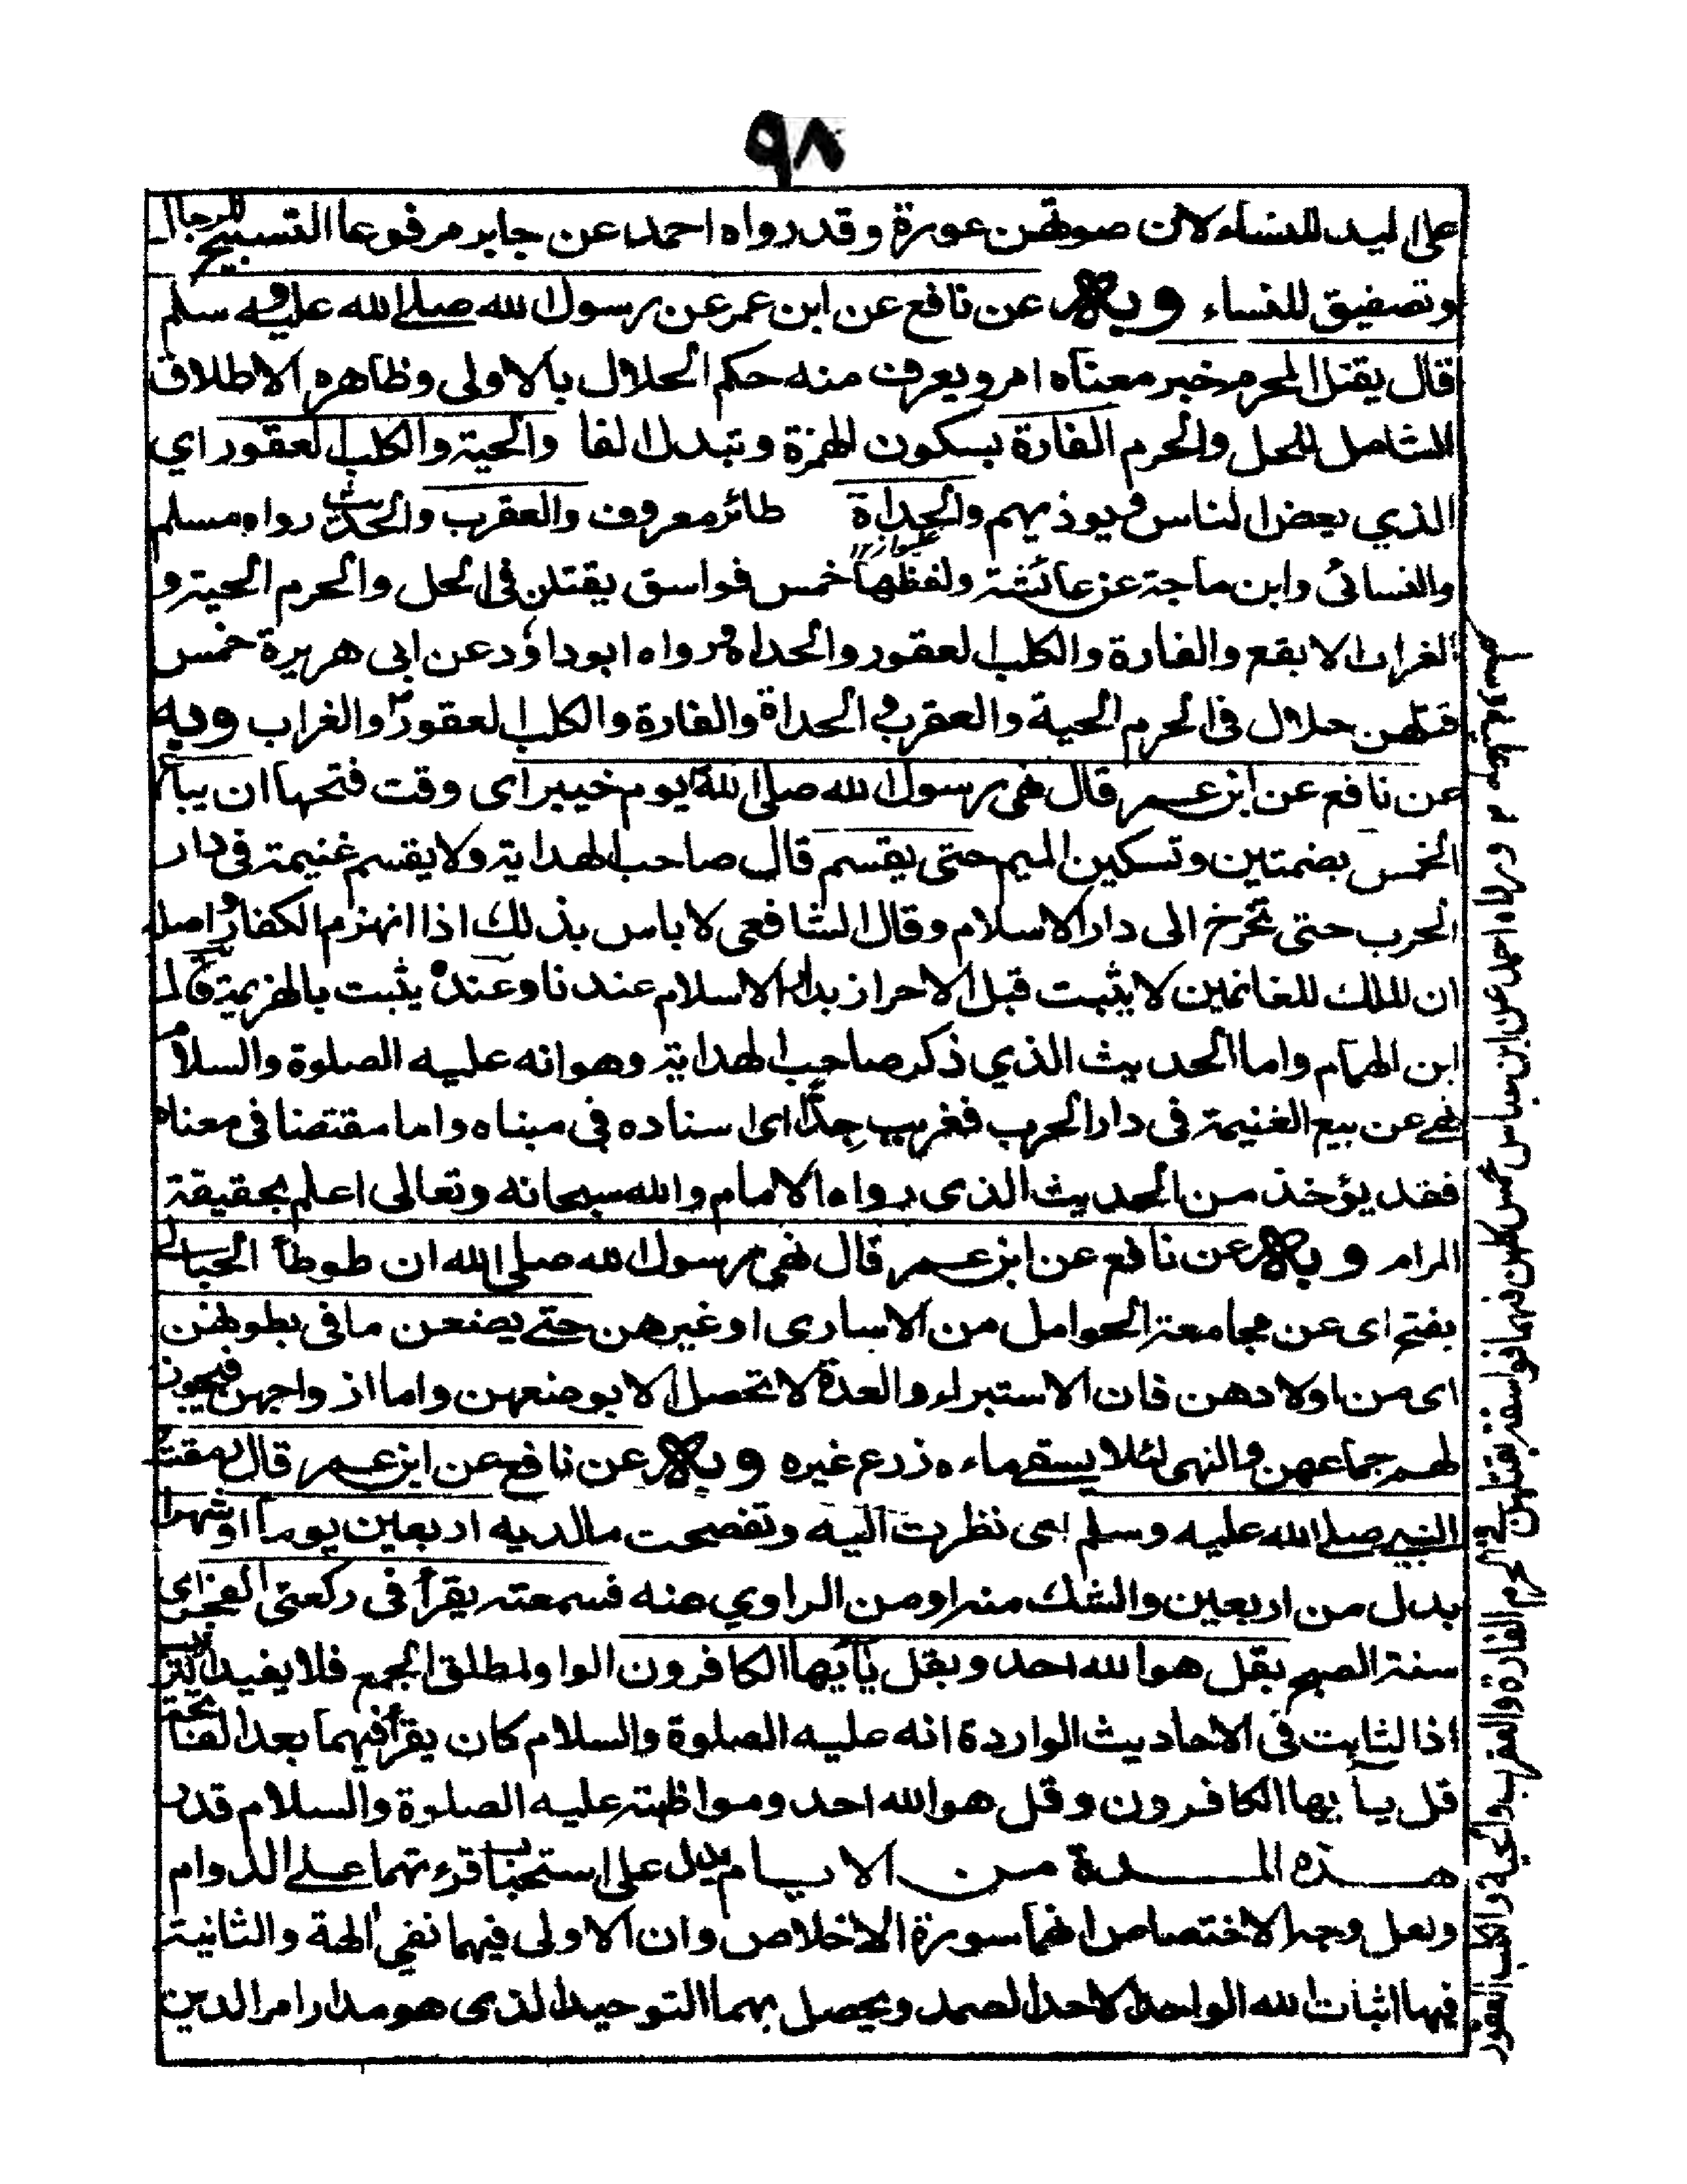 ٩٨
على اليد للنساء لان صوتهن عورة وقد رواه احمد عن جابر مرفوعا التسبيح للرجال
وتصفيق للنساء وبه عن نافع عن ابن عمر عن رسول الله صلى الله عليه وسلم
قال يقتل المحرم خبر معناه امر ويعرف منه حكم الحلال بالاولى وظاهره الاطلاق
الشامل للحل والحرم الفارة بسكون الهمزة وتبدل الفا والحية والكلب العقور اي
الذي يعض الناس ويوذيهم والحداة طائر معروف والعقرب والحديث رواه مسلم
والنسائى وابن ماجة عن عائشة ولفظهما خمس فواسق يقتلن فى الحل والحرم الحية و
الغراب الابقع والفارة والكلب العقور والحداة ورواه ابوداود عن ابى هريرة خمس
قتلهن حلال فى الحرم الحية والعقرب و الحداة والفارة والكلب العقور والغراب وبه
عن نافع عن ابن عمر قال نهى رسول الله صلى الله يوم خيبر اى وقت فتحها ان يباع
الخمس بضمتين وتسكين الميم حتى يقسم قال صاحب الهداية ولا يقسم غنيمة فى دار
الحرب حتى تخرج الى دار الاسلام وقال الشافعى لا باس بذلك اذا انهزم الكفار واصله
ان الملك للغانمين لا يثبت قبل الاحراز بدار الاسلام عندنا وعنده يثبت بالهزيمة قال
ابن الهمام واما الحديث الذي ذكر صاحب الهداية وهو انه عليه الصلوة والسلام
نهى عن بيع الغنيمة فى دار الحرب فغريب جدًّا اى اسناده فى مبناه واما مقتضا فى معناه
فقد يؤخذ من الحديث الذى رواه الامام والله سبحانه وتعالى اعلم بحقيقة
المرام وبه عن نافع عن ابن عمر قال نهى رسول الله صلى الله ان طوطأ الحبالى
بفتح اى عن مجامعة الحوامل من الاسارى او غيرهن حتى يضعن ما فى بطونهن
اى من اولادهن فان الاستبراء والعدة لا تحصل الا بوضعهن واما ازواجهن فيجوز
لهم جماعهن والنهى لئلا يسقى ماءه زرع غيره وبه عن نافع عن ابن عمر قال رمقت
النبى صلى الله عليه وسلم اى نظرت اليه وتفصحت مالديه اربعين يوما او شهرا
بدل من اربعين والشك منه او من الراوي عنه فسمعته يقرأ فى ركعتى الفجر اى
سنة الصبح بقل هو الله احد وبقل يأيها الكافرون الواو لمطلق الجمع فلا يفيد الترتيب
اذ الثابت فى الاحاديث الواردة انه عليه الصلوة والسلام كان يقرأ فيهما بعد الفاتحة
قل يأيها الكافرون وقل هو الله احد ومواظبته عليه الصلوة والسلام قدر
هذه المدة من الايام يدل على استحباب قرءتهما على الدوام
ولعل وجه الاختصاص انهما سورة الاخلاص وان الاولى فيهما نفى الهة والثانية
فيها اثبات الله الواحد الاحد الصمد ويحصل بهما التوحيد الذى هو مدار امر الدين
ورواه احمد عن ابن عباس خمس كلهن فواسقة يقتلهن المحرم الفارة والعقرب والحية والكلب العقور